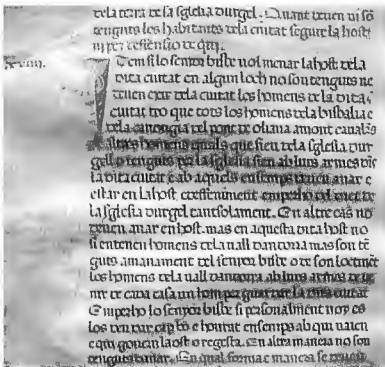 dela terra de la sglesia durgel. Quant deuen ni son
tenguts los habitants dela ciutat seguir la host
ni per deffensio de qui.
Item si lo senyor bisbe vol menar la host dela
dita ciutat en algun loch no son tenguts ne
deuen exir dela ciutat los homens de la dita
ciutat tro que tots los homens dela bisbalia e
dela canongia del pont de oliana amont cauallers
e altres homens quals que sien dela sglesia dur
gell o tenguts per la sglesia sien ab lurs armes dins
la dita ciutat e ab aquells ensemps deuen anar e
estar en la host e deffeniment emperho del dret de
la sglesia durgel tansolament. En altre cas no
deuen anar en host. mas en aquesta dita host no
si entenen homens dela uall dandorra mas son ten
guts a manament del senyor bisbe o de son loctinent
los homens dela uall dandorra ab lurs armes de ue
nir de cada casa un hom per guardar la dita ciutat
Emperho lo senyor bisbe si personalment noy es
los deu dar cap bo e honrat ensemps ab qui uagen
e qui gouern la ost o regesta. En altra manera no son
tenguts danar. En qual forma e manera se deuen